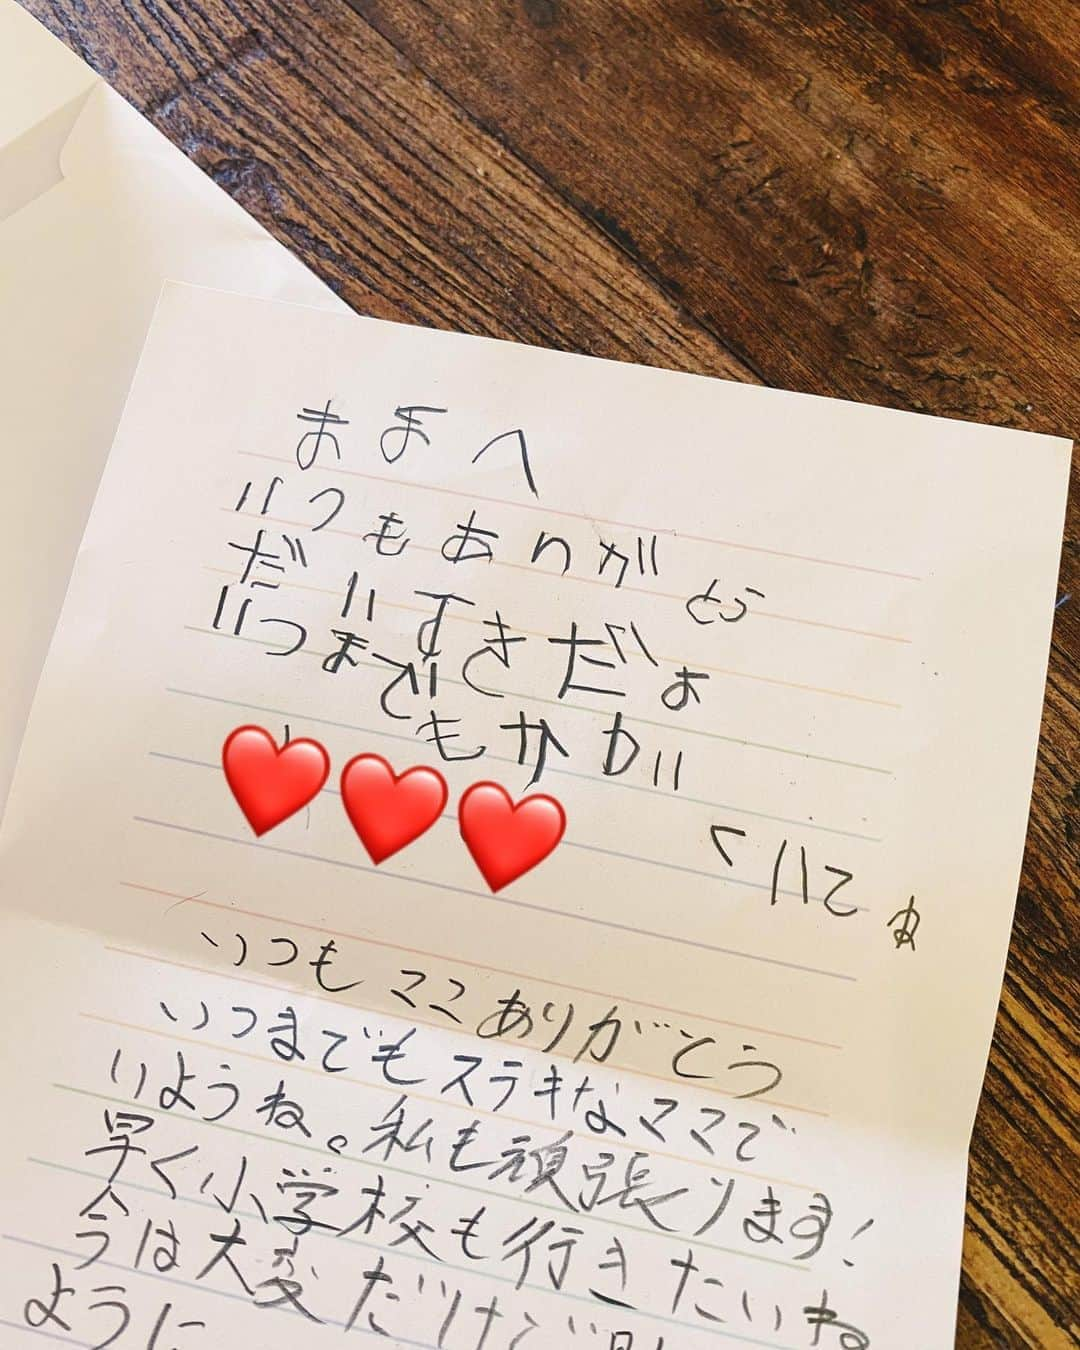 ままへ
いつもありがとう
だいすきだよ
いつまでもかわい
くいてね
いつもママありがとう
いつまでもステキなママで
いようね。私も頑張ります!
早く小学校も行きたいね
今は大変だけど
ように